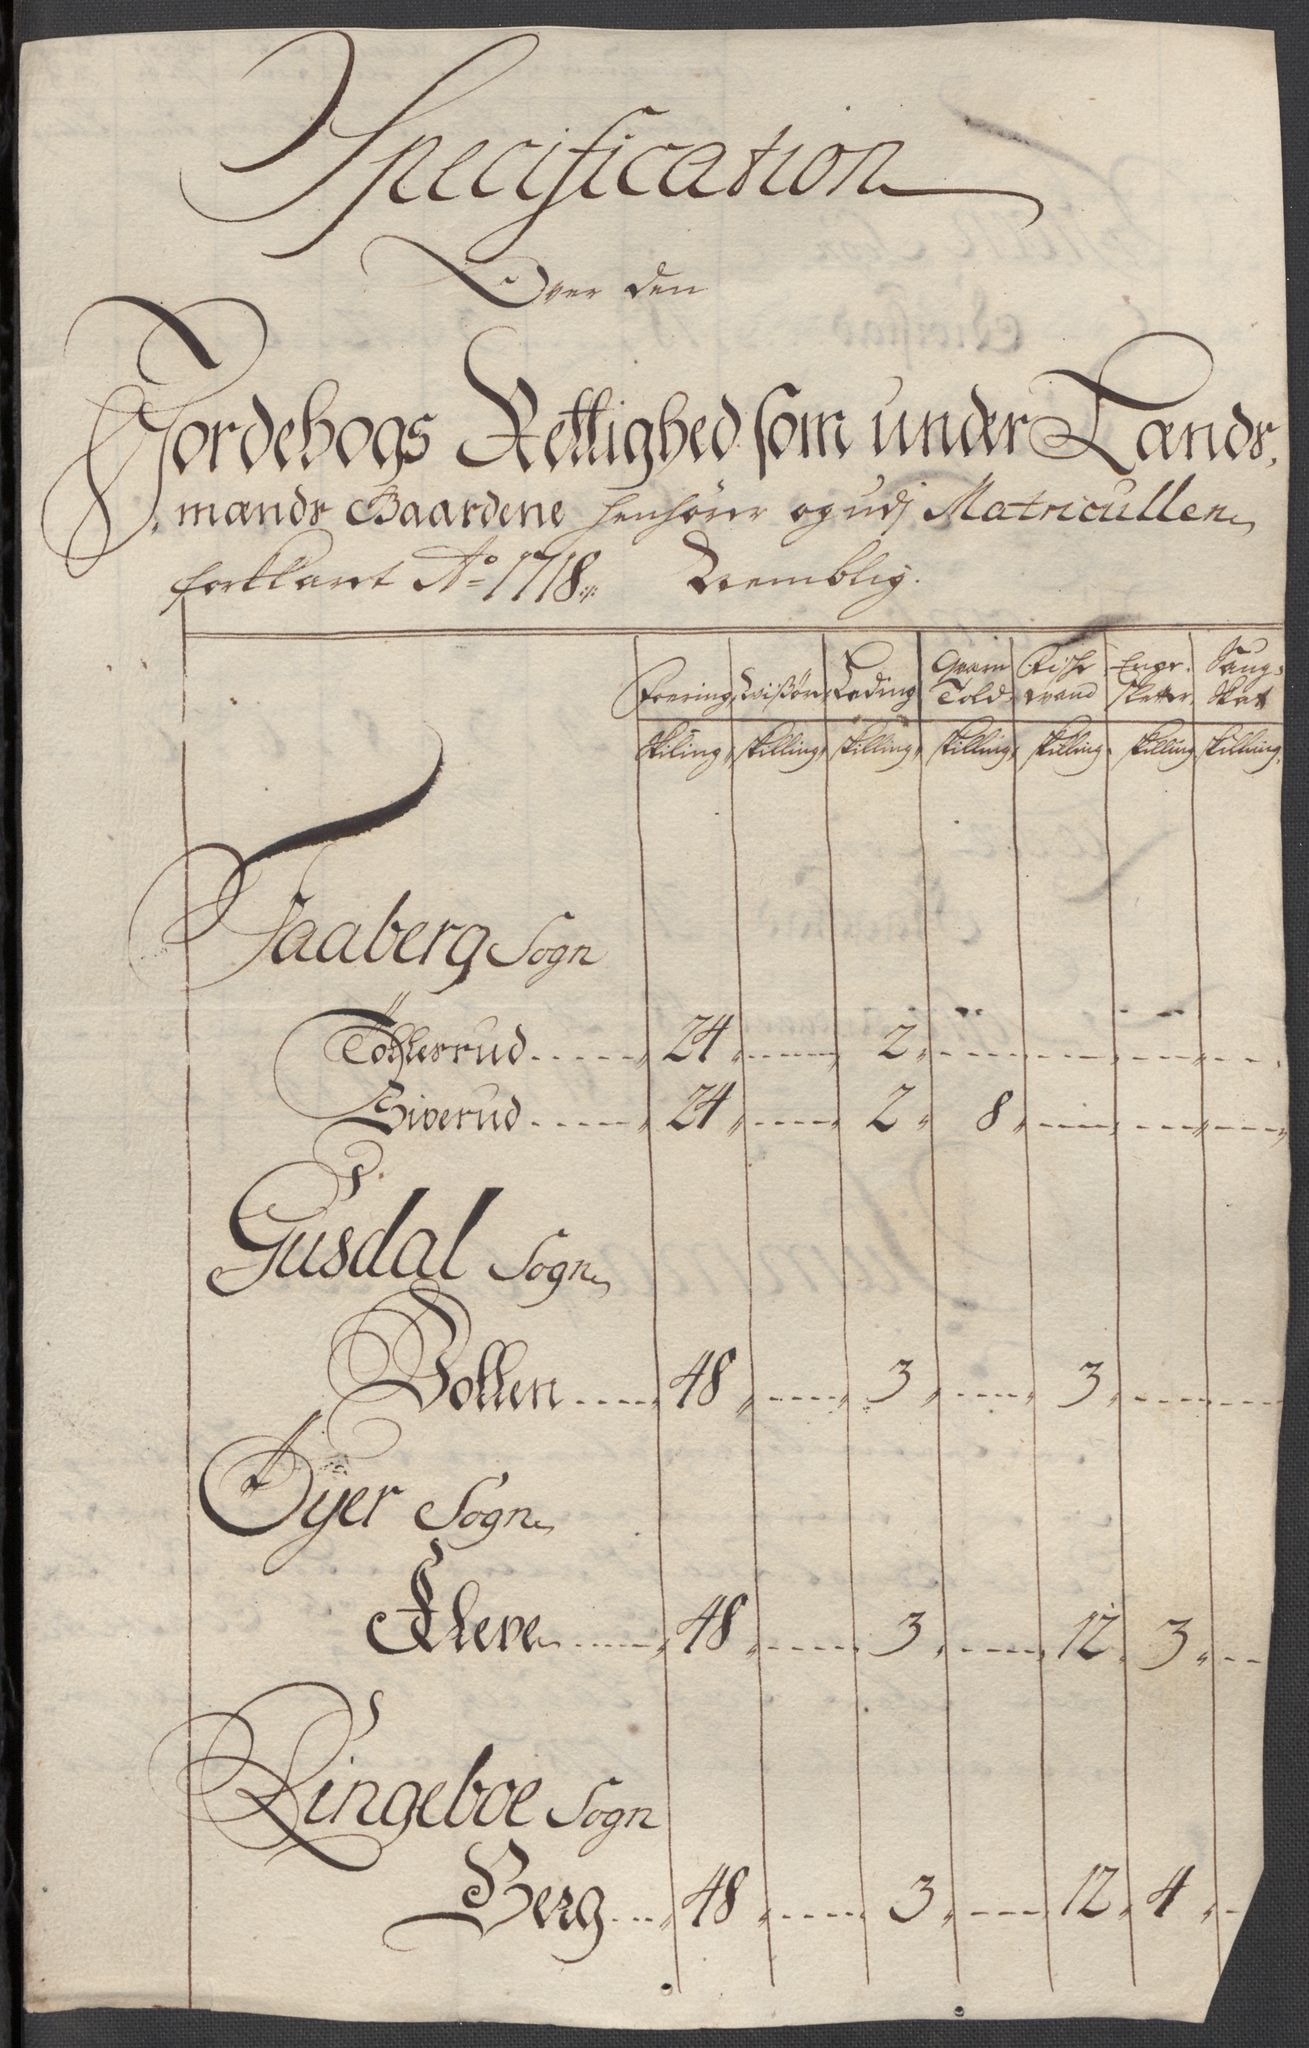 Specification
Over den
Jordebogs Rettighed som under Lænds,
mænds Gaardene henhører og udj Matricullen
forklart Ao 1718. Nemblig.
Foering, Wißøre, Leding, Qværn Told Fische wand Enge skatter Saug Skat
skiling, skilling, skilling, skilling, skilling, skilling skilling,
Faaberg Sogn
Tollersrud 24 2
Siverud 24 2 8
Gusdal Sogn
Bollen 48 3 3
Øyer Sogn
Skeve 48 3 12 3
Ringeboe Sogn
Berg 48 3 12 4